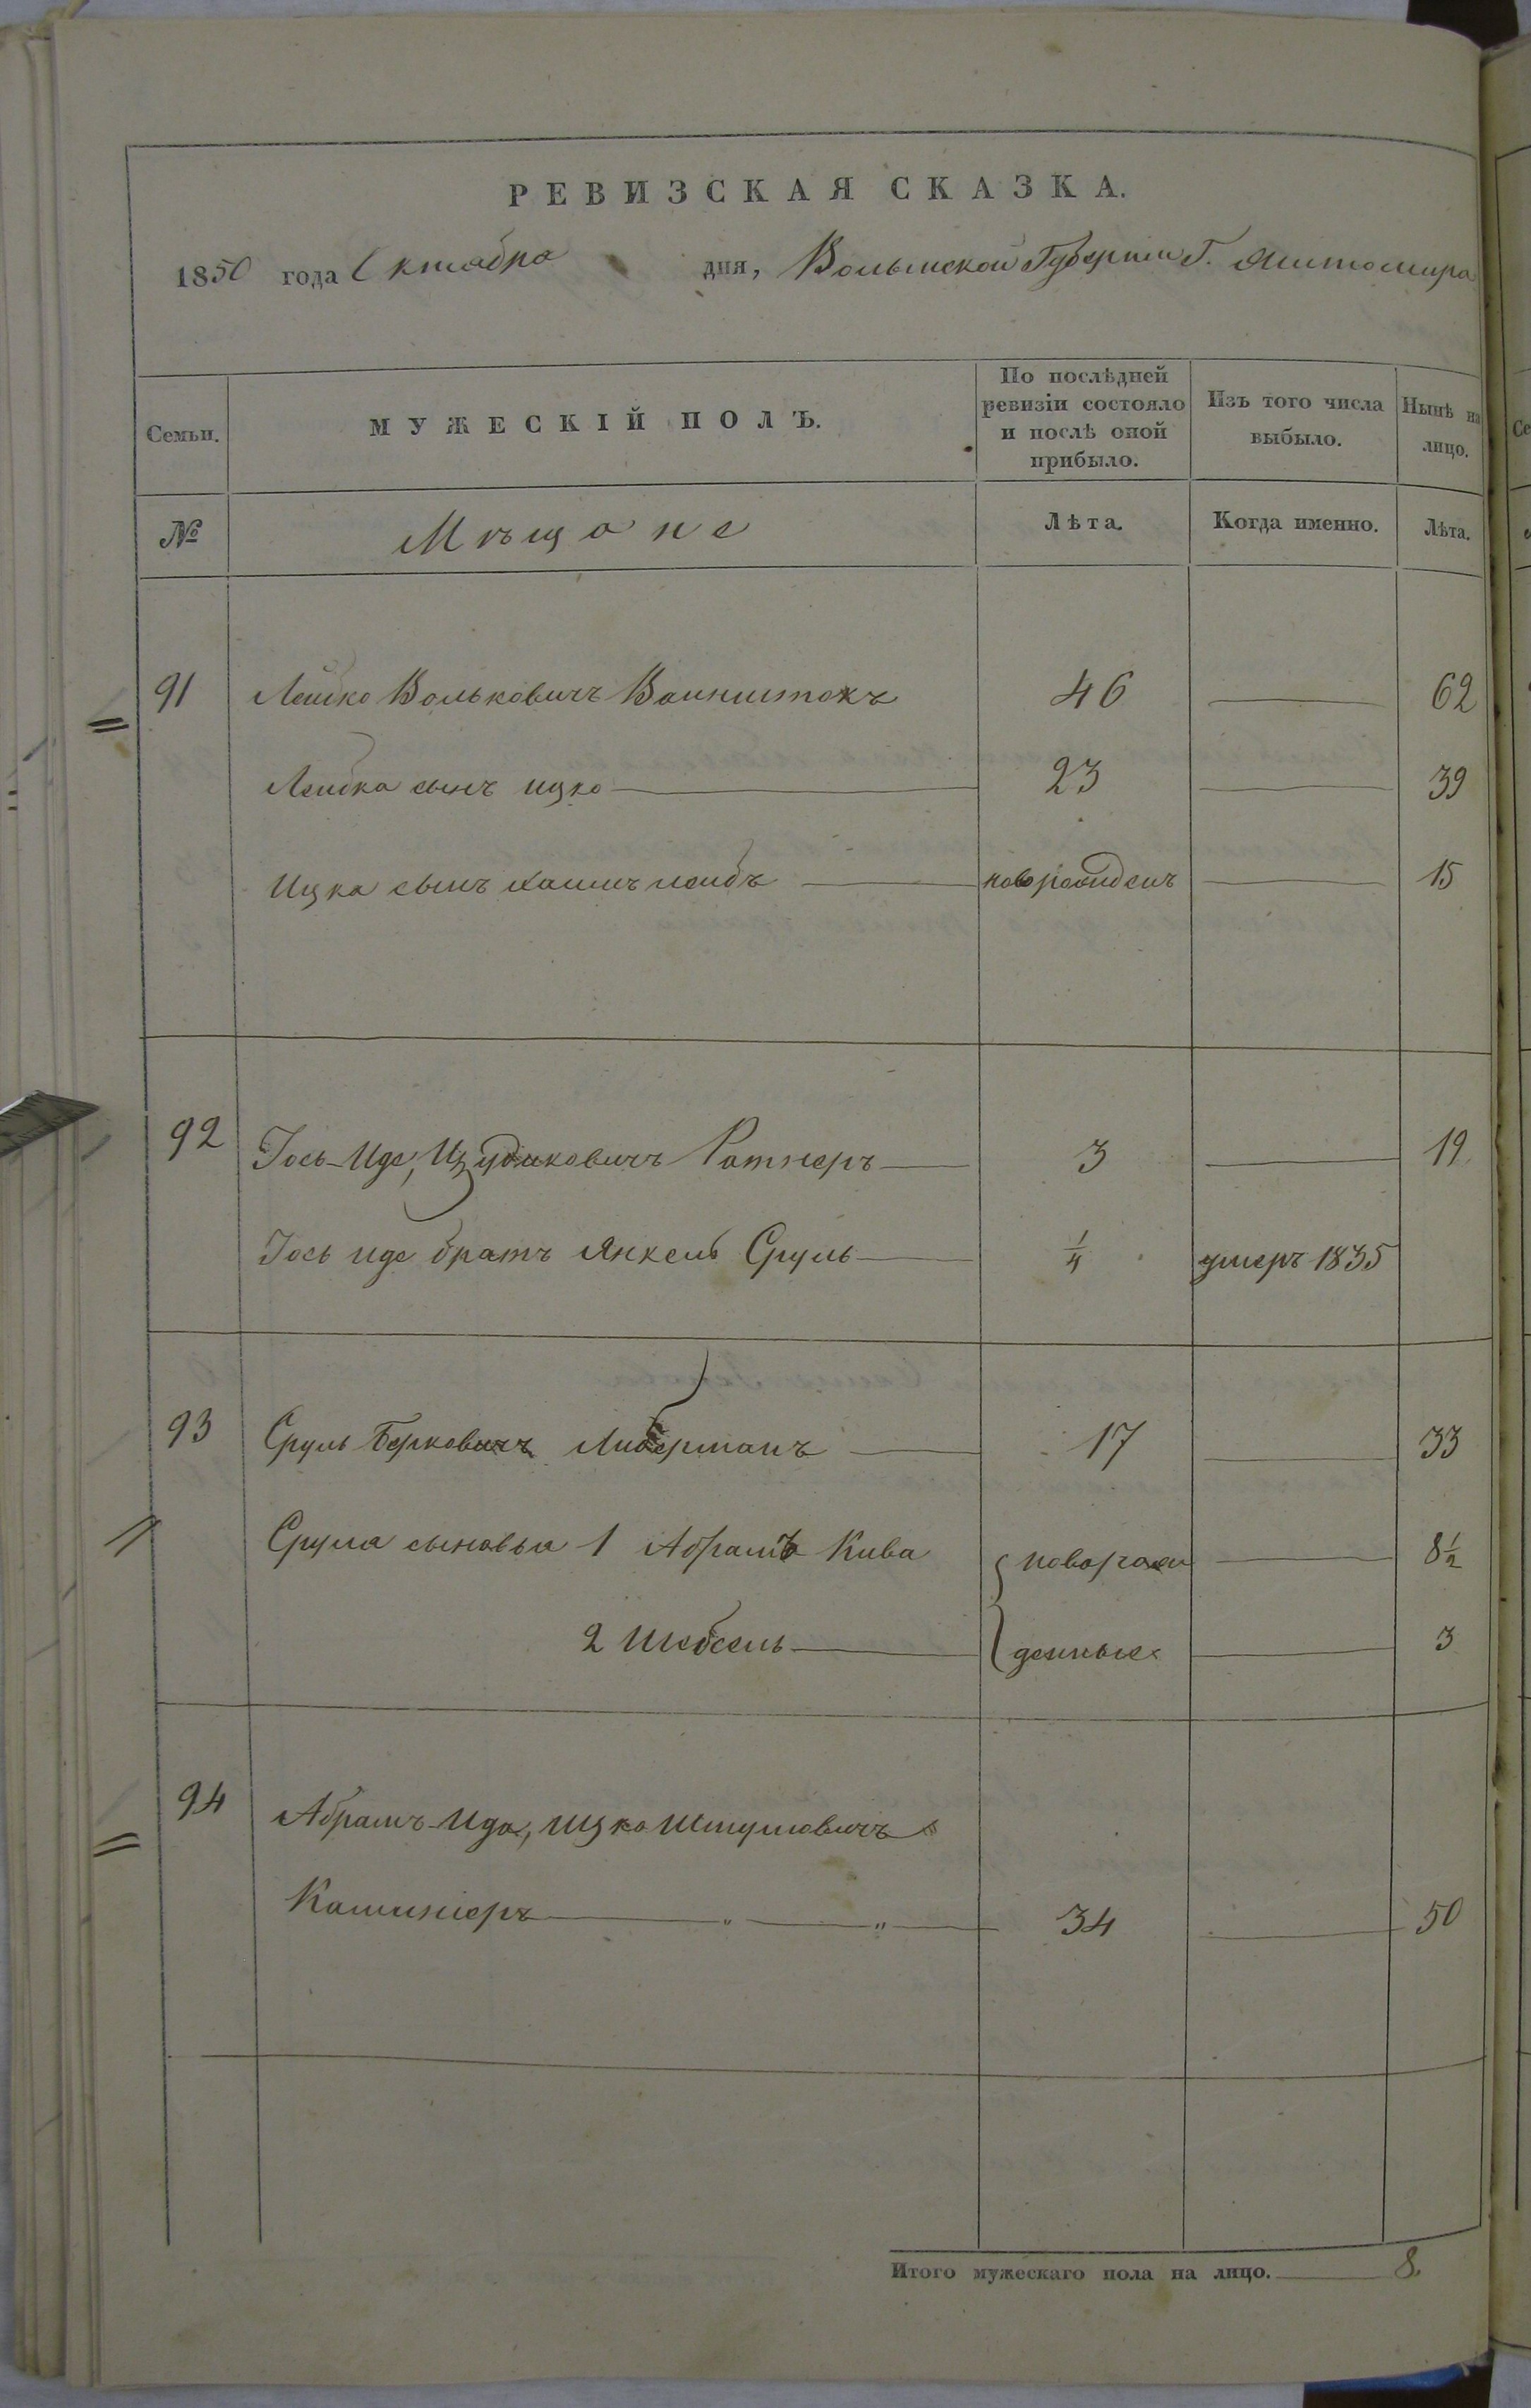 РЕВИЗСКАЯ СКАЗКА.
1850 года Октября дня, Волынской Губернии Г. Житомира
Семьи. МУЖЕСКІЙ ПОЛЪ. По послѣдней ревизіи состояло и послѣ оной прибыло. Изъ того числа выбыло. Нынѣ на лицо.
№ Мѣщане Лѣта. Когда именно. Лѣта.
91 Лейко Вольковичъ Вайнштокъ 46 62
Лейка сынъ ицко 23 39
Ицка сынъ хаимъ лейбъ новорожденъ 15
92 Іось-Иде, Ратнеръ 3 19
Іось иде братъ Янкель Сруль 1/4 умеръ 1835
93 Сруль Берковичъ Либерманъ 17 33
Сруля сыновья 1 Абрамъ Кива новорож 8 1/2
2 Шебсель денные 3
94 Абрамъ-Ида, Ицко
34 50
Итого мужескаго пола на лицо. 8.